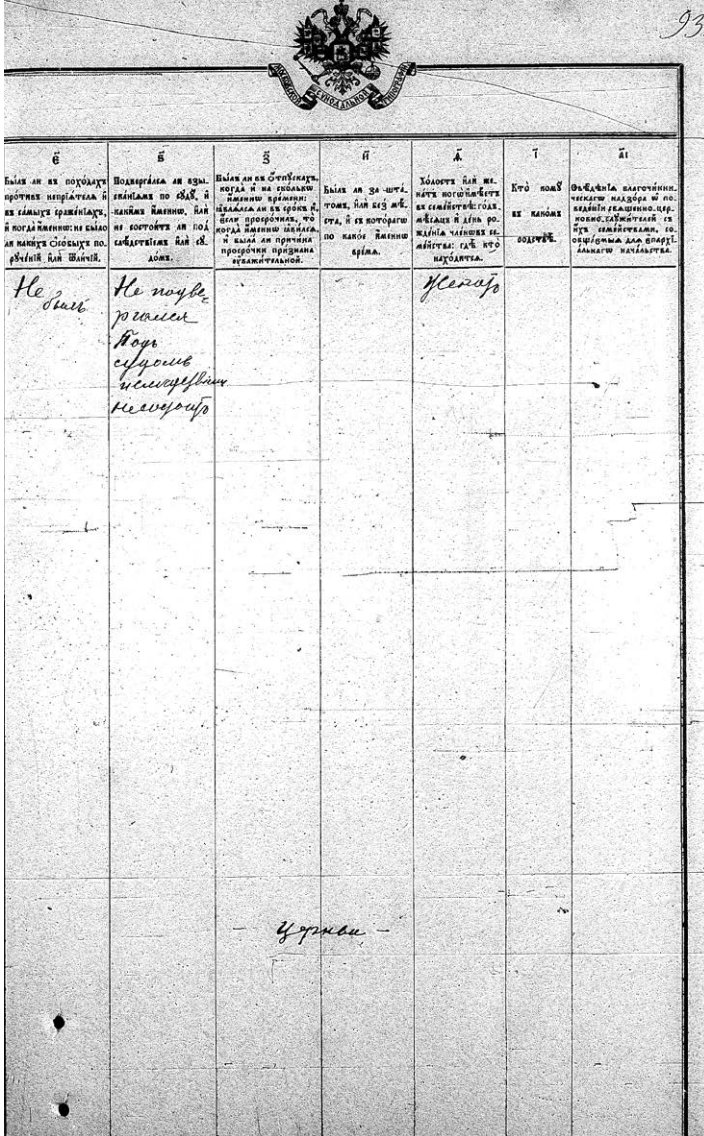 93
МОСКОВСКОЙ СѴНОДАЛЬНОЙ ТИПОГРАФІИ
є҃
Былъ ли въ походахъ
противъ непрїѧтелѧ и҆
въ самыхъ сраженїѧхъ,
и҆ когда и҆менно: не было
ли какихъ ѻсобыхъ по-
рученїй и҆ли ѿличїй.
ѕ҃
Подвергалсѧ ли взы-
сканїѧмъ по сꙋдꙋ, и҆
какимъ и҆менно, и҆ли
не состоитъ ли под
слѣдствїемъ и҆ли сꙋ-
домъ.
з҃
Былъ ли въ ѻтпꙋскахъ,
когда и҆ на сколькѡ
и҆менно времени:
ꙗвлѧлсѧ ли въ срокъ и҆,
є҆сли просрочилъ, то
когда и҆менно ꙗвилсѧ,
и҆ была ли причина
просрочки признана
ᲂуважительной.
и҃
Былъ ли за шта-
томъ, и҆ли без мѣ-
ста, и҆ съ котораго
по какое и҆менно
времѧ.
ѳ҃
Холостъ и҆ли же-
натъ, когѡ и҆мѣетъ
въ семействѣ: годъ,
мѣсѧцъ и҆ день ро-
жденїѧ членѡвъ се-
мейства: гдѣ кто
находитсѧ.
і҃
Кто комꙋ
въ какомъ
родствѣ.
а҃і
Свѣдѣнїѧ благочинни-
ческагѡ надзора ѡ по-
веденїи свѧщенно-цер-
ковно-слꙋжителей съ
и҆хъ семействами, со-
ѻбщаемыѧ длѧ є҆пархї-
альнагѡ начальства.
Не
былъ
Не подве-
ргался
Подъ
судомъ
и слѣдствіемъ
не состоитъ
Женатъ
- Церкви -